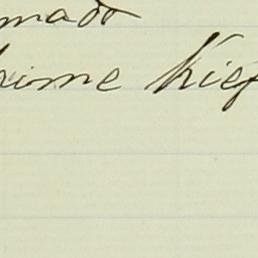 mado
xime Kief